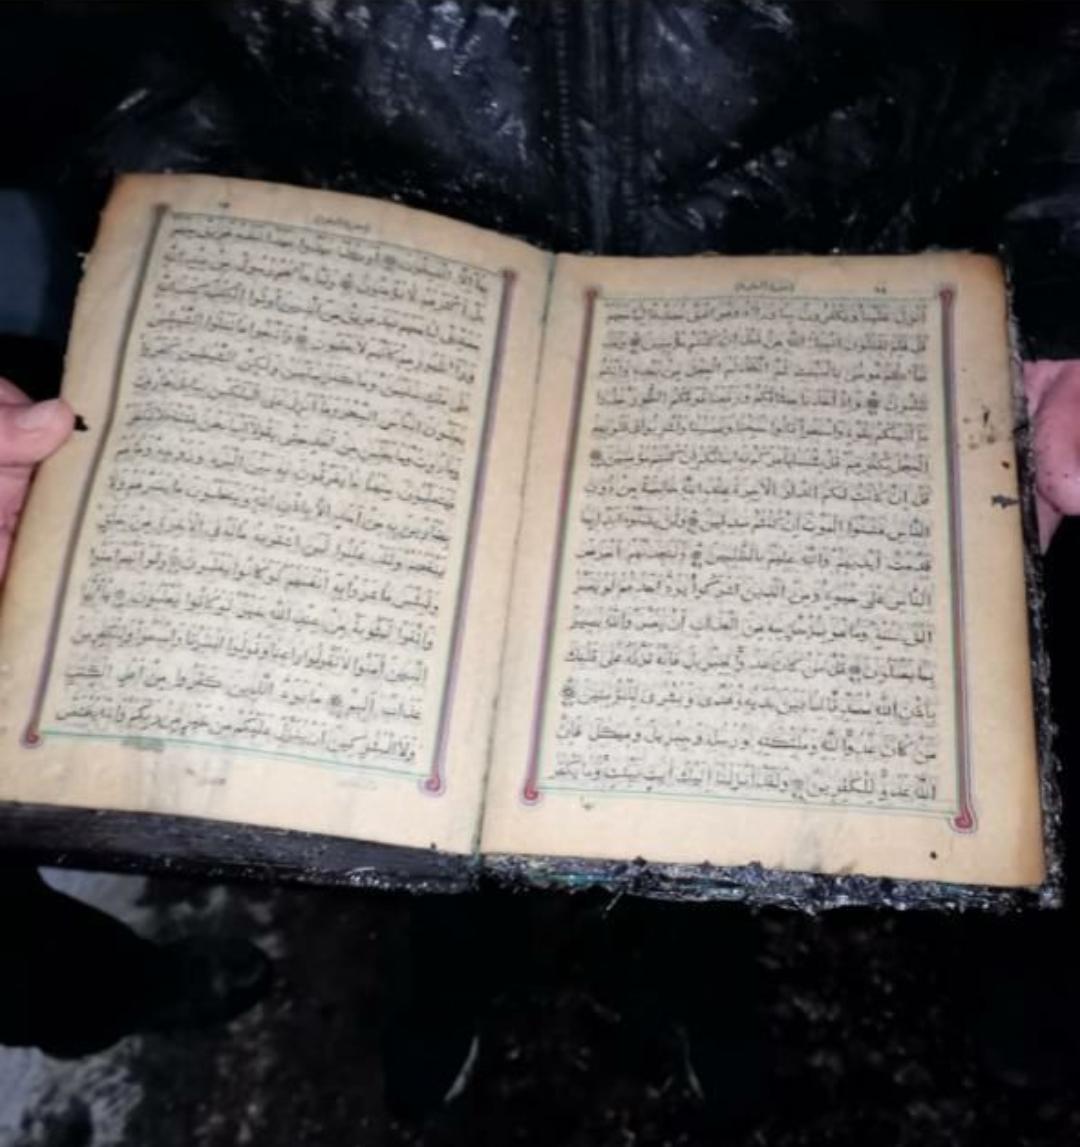 سورة البقرة
اُنْزِلَ عَلَيْنَا وَيَكْفُرُونَ بِمَا وَرَٓاءَهُ وَهُوَ الْحَقُّ مُصَدِّقًا لِمَا مَعَهُمْ
قُلْ فَلِمَ تَقْتُلُونَ اَنْبِيَٓاءَ اللّٰهِ مِنْ قَبْلُ اِنْ كُنْتُمْ مُؤْمِنِينَ وَلَقَدْ
جَٓاءَكُمْ مُوسٰى بِالْبَيِّنَاتِ ثُمَّ اتَّخَذْتُمُ الْعِجْلَ مِنْ بَعْدِهِ وَاَنْتُمْ
ظَالِمُونَ وَاِذْ اَخَذْنَا مِيثَاقَكُمْ وَرَفَعْنَا فَوْقَكُمُ الطُّورَ خُذُوا
مَٓا اٰتَيْنَاكُمْ بِقُوَّةٍ وَاسْمَعُوا قَالُوا سَمِعْنَا وَعَصَيْنَا وَاُشْرِبُوا فِي قُلُوبِهِمُ
الْعِجْلَ بِكُفْرِهِمْ قُلْ بِئْسَمَا يَأْمُرُكُمْ بِهِ اِيمَانُكُمْ اِنْ كُنْتُمْ مُؤْمِنِينَ
قُلْ اِنْ كَانَتْ لَكُمُ الدَّارُ الْاٰخِرَةُ عِنْدَ اللّٰهِ خَالِصَةً مِنْ دُونِ
النَّاسِ فَتَمَنَّوُا الْمَوْتَ اِنْ كُنْتُمْ صَادِقِينَ وَلَنْ يَتَمَنَّوْهُ اَبَدًا بِمَا
قَدَّمَتْ اَيْدِيهِمْ وَاللّٰهُ عَلِيمٌ بِالظَّالِمِينَ وَلَتَجِدَنَّهُمْ اَحْرَصَ
النَّاسِ عَلٰى حَيٰوةٍ وَمِنَ الَّذِينَ اَشْرَكُوا يَوَدُّ اَحَدُهُمْ لَوْ يُعَمَّرُ
اَلْفَ سَنَةٍ وَمَا هُوَ بِمُزَحْزِحِهِ مِنَ الْعَذَابِ اَنْ يُعَمَّرَ وَاللّٰهُ بَصِيرٌ
بِمَا يَعْمَلُونَ قُلْ مَنْ كَانَ عَدُوًّا لِجِبْرِيلَ فَاِنَّهُ نَزَّلَهُ عَلٰى قَلْبِكَ
بِاِذْنِ اللّٰهِ مُصَدِّقًا لِمَا بَيْنَ يَدَيْهِ وَهُدًى وَبُشْرٰى لِلْمُؤْمِنِينَ
مَنْ كَانَ عَدُوًّا لِلّٰهِ وَمَلٰٓئِكَتِهِ وَرُسُلِهِ وَجِبْرِيلَ وَمِيكٰلَ فَاِنَّ
اللّٰهَ عَدُوٌّ لِلْكَافِرِينَ وَلَقَدْ اَنْزَلْنَٓا اِلَيْكَ اٰيَاتٍ بَيِّنَاتٍ وَمَا يَكْفُرُ
سورة البقرة
بِهَٓا اِلَّا الْفَاسِقُونَ اَوَكُلَّمَا عَاهَدُوا عَهْدًا نَبَذَهُ فَرِيقٌ مِنْهُمْ
بَلْ اَكْثَرُهُمْ لَا يُؤْمِنُونَ وَلَمَّا جَٓاءَهُمْ رَسُولٌ مِنْ عِنْدِ اللّٰهِ
مُصَدِّقٌ لِمَا مَعَهُمْ نَبَذَ فَرِيقٌ مِنَ الَّذِينَ اُوتُوا الْكِتَابَ كِتَابَ اللّٰهِ
وَرَٓاءَ ظُهُورِهِمْ كَاَنَّهُمْ لَا يَعْلَمُونَ وَاتَّبَعُوا مَا تَتْلُوا الشَّيَاطِينُ
عَلٰى مُلْكِ سُلَيْمٰنَ وَمَا كَفَرَ سُلَيْمٰنُ وَلٰكِنَّ الشَّيَاطِينَ كَفَرُوا
يُعَلِّمُونَ النَّاسَ السِّحْرَ وَمَٓا اُنْزِلَ عَلَى الْمَلَكَيْنِ بِبَابِلَ هَارُوتَ
وَمَارُوتَ وَمَا يُعَلِّمَانِ مِنْ اَحَدٍ حَتّٰى يَقُولَٓا اِنَّمَا نَحْنُ فِتْنَةٌ فَلَا تَكْفُرْ
فَيَتَعَلَّمُونَ مِنْهُمَا مَا يُفَرِّقُونَ بِهِ بَيْنَ الْمَرْءِ وَزَوْجِهِ وَمَا هُمْ
بِضَٓارِّينَ بِهِ مِنْ اَحَدٍ اِلَّا بِاِذْنِ اللّٰهِ وَيَتَعَلَّمُونَ مَا يَضُرُّهُمْ وَلَا
يَنْفَعُهُمْ وَلَقَدْ عَلِمُوا لَمَنِ اشْتَرٰيهُ مَا لَهُ فِي الْاٰخِرَةِ مِنْ خَلَاقٍ
وَلَبِئْسَ مَا شَرَوْا بِهِ اَنْفُسَهُمْ لَوْ كَانُوا يَعْلَمُونَ وَلَوْ اَنَّهُمْ اٰمَنُوا
وَاتَّقَوْا لَمَثُوبَةٌ مِنْ عِنْدِ اللّٰهِ خَيْرٌ لَوْ كَانُوا يَعْلَمُونَ يَٓا اَيُّهَا
الَّذِينَ اٰمَنُوا لَا تَقُولُوا رَاعِنَا وَقُولُوا انْظُرْنَا وَاسْمَعُوا وَلِلْكَافِرِينَ
عَذَابٌ اَلِيمٌ مَا يَوَدُّ الَّذِينَ كَفَرُوا مِنْ اَهْلِ الْكِتَابِ
وَلَا الْمُشْرِكِينَ اَنْ يُنَزَّلَ عَلَيْكُمْ مِنْ خَيْرٍ مِنْ رَبِّكُمْ وَاللّٰهُ يَخْتَصُّ